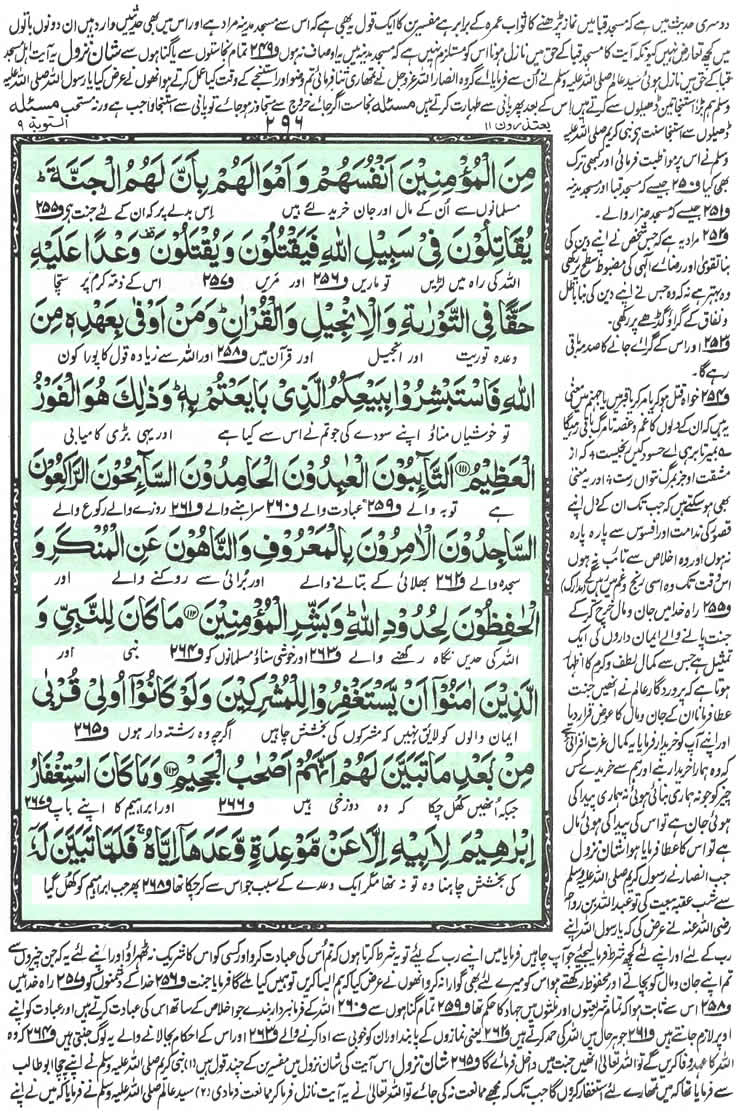 دوسری حدیث میں ہے کہ مسجد قبا میں نماز پڑھنے کا ثواب عمرہ کے برابر ہے مفسرین کا ایک قول یہ بھی ہے کہ اس سے مسجد مدینہ مراد ہے اور اس میں بھی حدیثیں وارد ہیں ان دونوں باتوں
میں کچھ تعارض نہیں کیونکہ آیت کا مسجد قبا کے حق میں نازل ہونا اس کو مستلزم نہیں ہے کہ مسجد مدینہ میں یہ اوصاف نہ ہوں و۲۴۹ تمام نجاستوں سے یا گناہوں سے شان نزول یہ آیت اہل مسجد
قبا کے حق میں نازل ہوئی سید عالم صلی اللہ علیہ وسلم نے اُن سے فرمایا اے گروہ انصار اللہ عزوجل نے تمھاری ثنا فرمائی تم وضو اور استنجے کے وقت کیا عمل کرتے ہو انھوں نے عرض کیا یا رسول اللہ صلی اللہ علیہ
وسلم ہم بڑا استنجا تین ڈھیلوں سے کرتے ہیں اس کے بعد پھر پانی سے طہارت کرتے ہیں مسئلہ نجاست اگر جائے خروج سے متجاوز ہو جائے تو پانی سے استنجا واجب ہے ورنہ مستحب مسئلہ
یعتذرون ۱۱
۲۹۶
التوبة ۹
مِنَ الْمُؤْمِنِيْنَ اَنْفُسَهُمْ وَاَمْوَالَهُمْ بِاَنَّ لَهُمُ الْجَنَّةَ ؕ
مسلمانوں سے اُن کے مال اور جان خرید لئے ہیں اس بدلے پر کہ ان کے لئے جنت ہو و۲۵۵
يُقَاتِلُوْنَ فِيْ سَبِيْلِ اللّٰهِ فَيَقْتُلُوْنَ وَيُقْتَلُوْنَ ۫ وَعْدًا عَلَيْهِ
اللہ کی راہ میں لڑیں تو ماریں و۲۵۶ اور مریں و۲۵۷ اس کے ذمہ کرم پر سچا
حَقًّا فِي التَّوْرٰىةِ وَالْاِنْجِيْلِ وَالْقُرْاٰنِ ؕ وَمَنْ اَوْفٰى بِعَهْدِهٖ مِنَ
وعدہ توریت اور انجیل اور قرآن میں و۲۵۸ اور اللہ سے زیادہ قول کا پورا کون
اللّٰهِ فَاسْتَبْشِرُوْا بِبَيْعِكُمُ الَّذِيْ بَايَعْتُمْ بِهٖ ؕ وَذٰلِكَ هُوَ الْفَوْزُ
تو خوشیاں مناؤ اپنے سودے کی جو تم نے اس سے کیا ہے اور یہی بڑی کامیابی
الْعَظِيْمُ ﴿۱۱۱﴾ اَلتَّآئِبُوْنَ الْعٰبِدُوْنَ الْحَامِدُوْنَ السَّآئِحُوْنَ الرّٰكِعُوْنَ
ہے توبہ والے و۲۵۹ عبادت والے و۲۶۰ سراہنے والے و۲۶۱ روزے والے رکوع والے
السَّاجِدُوْنَ الْاٰمِرُوْنَ بِالْمَعْرُوْفِ وَالنَّاهُوْنَ عَنِ الْمُنْكَرِ وَ
سجدہ والے و۲۶۲ بھلائی کے بتانے والے اور برائی سے روکنے والے اور
الْحٰفِظُوْنَ لِحُدُوْدِ اللّٰهِ ؕ وَبَشِّرِ الْمُؤْمِنِيْنَ ﴿۱۱۲﴾ مَا كَانَ لِلنَّبِيِّ وَ
اللہ کی حدیں نگاہ رکھنے والے و۲۶۳ اور خوشی سناؤ مسلمانوں کو و۲۶۴ نبی اور
الَّذِيْنَ اٰمَنُوْۤا اَنْ يَّسْتَغْفِرُوْا لِلْمُشْرِكِيْنَ وَلَوْ كَانُوْۤا اُولِيْ قُرْبٰى
ایمان والوں کو لائق نہیں کہ مشرکوں کی بخشش چاہیں اگرچہ وہ رشتہ دار ہوں و۲۶۵
مِنْۢ بَعْدِ مَا تَبَيَّنَ لَهُمْ اَنَّهُمْ اَصْحٰبُ الْجَحِيْمِ ﴿۱۱۳﴾ وَمَا كَانَ اسْتِغْفَارُ
جبکہ انھیں کھل چکا کہ وہ دوزخی ہیں و۲۶۶ اور ابراہیم کا اپنے باپ و۲۶۷
اِبْرٰهِيْمَ لِاَبِيْهِ اِلَّا عَنْ مَّوْعِدَةٍ وَّعَدَهَاۤ اِيَّاهُ ۚ فَلَمَّا تَبَيَّنَ لَهٗۤ
کی بخشش چاہنا وہ تو نہ تھا مگر ایک وعدے کے سبب جو اس سے کر چکا تھا و۲۶۸ پھر جب ابراہیم کو کھل گیا
ڈھیلوں سے استنجا سنت ہے نبی کریم صلی اللہ علیہ
وسلم نے اس پر مواظبت فرمائی اور کبھی ترک
بھی کیا و۲۵۰ جیسے کہ مسجد قبا اور مسجد مدینہ
و۲۵۱ جیسے کہ مسجد ضرار والے۔
و۲۵۲ مراد یہ ہے کہ جس شخص نے اپنے دین کی
بنا تقویٰ اور رضائے الٰہی کی مضبوط سطح پر رکھی
وہ بہتر ہے نہ کہ وہ جس نے اپنے دین کی بنا باطل
و نفاق کے گراؤ گڑھے پر رکھی۔
و۲۵۳ اور اس کے گرائے جانے کا صدمہ باقی
رہے گا۔
و۲۵۴ خواہ قتل ہو کر یا مر کر یا قبر میں یا جہنم میں معنی
یہ ہیں کہ ان کے دلوں کا غم و غصہ تا مرگ باقی رہے گا
بمیر تا برہی اے حسود کیں رنجیست کہ از
مشقت او جز بمرگ نتواں رست اور یہ معنی
بھی ہو سکتے ہیں کہ جب تک ان کے دل اپنے
قصور کی ندامت اور افسوس سے پارہ پارہ
نہ ہوں اور وہ اخلاص سے تائب نہ ہوں
اس وقت تک وہ اسی رنج و غم میں رہیں گے (مدارک)
و۲۵۵ راہ خدا میں جان و مال خرچ کر کے
جنت پانے والے ایمان داروں کی ایک
تمثیل ہے جس سے کمال لطف و کرم کا اظہار
ہوتا ہے کہ پروردگار عالم نے انھیں جنت
عطا فرمانا ان کے جان و مال کا عوض قرار دیا
اور اپنے آپ کو خریدار فرمایا یہ کمال عزت افزائی ہے
کہ وہ ہمارا خریدار بنے اور ہم سے خریدے کس
چیز کو جو نہ ہماری بنائی ہوئی نہ ہماری پیدا کی
ہوئی جان ہے تو اس کی پیدا کی ہوئی مال
ہے تو اس کا عطا فرمایا ہوا شان نزول
جب انصار نے رسول کریم صلی اللہ علیہ وسلم
سے شب عقبہ بیعت کی تو عبد اللہ بن رواحہ
رضی اللہ عنہ نے عرض کی کہ یا رسول اللہ اپنے
رب کے لئے اور اپنے لئے کچھ شرط فرما لیجئے جو آپ چاہیں فرمایا میں اپنے رب کے لئے تو یہ شرط کرتا ہوں کہ تم اس کی عبادت کرو اور کسی کو اس کا شریک نہ ٹھہراؤ اور اپنے لئے یہ کہ جن چیزوں سے
تم اپنے جان و مال کو بچاتے اور محفوظ رکھتے ہو اس کو میرے لئے بھی گوارا نہ کرو انھوں نے عرض کیا کہ ہم ایسا کریں تو ہمیں کیا ملے گا فرمایا جنت و۲۵۶ خدا کے دشمنوں کو و۲۵۷ راہ خدا میں
و۲۵۸ اس سے ثابت ہوا کہ تمام شریعتوں اور ملتوں میں جہاد کا حکم تھا و۲۵۹ تمام گناہوں سے و۲۶۰ اللہ کے فرمانبردار بندے جو اخلاص کے ساتھ اس کی عبادت کرتے ہیں اور عبادت کو اپنے
اوپر لازم جانتے ہیں و۲۶۱ جو ہر حال میں اللہ کی حمد کرتے ہیں و۲۶۲ یعنی نمازوں کے پابند اور ان کو خوبی سے ادا کرنے والے و۲۶۳ اور اس کے احکام بجا لانے والے یہ لوگ جنتی ہیں و۲۶۴ کہ وہ
اللہ کا عہد وفا کریں گے تو اللہ تعالیٰ انھیں جنت میں داخل فرمائے گا و۲۶۵ شان نزول اس آیت کی شان نزول میں مفسرین کے چند قول ہیں (۱) نبی کریم صلی اللہ علیہ وسلم نے اپنے چچا ابو طالب
سے فرمایا تھا کہ میں تمھارے لئے استغفار کروں گا جب تک کہ مجھے ممانعت نہ کی جائے تو اللہ تعالیٰ نے یہ آیت نازل فرما کر ممانعت فرما دی (۲) سید عالم صلی اللہ علیہ وسلم نے فرمایا کہ میں نے اپنے